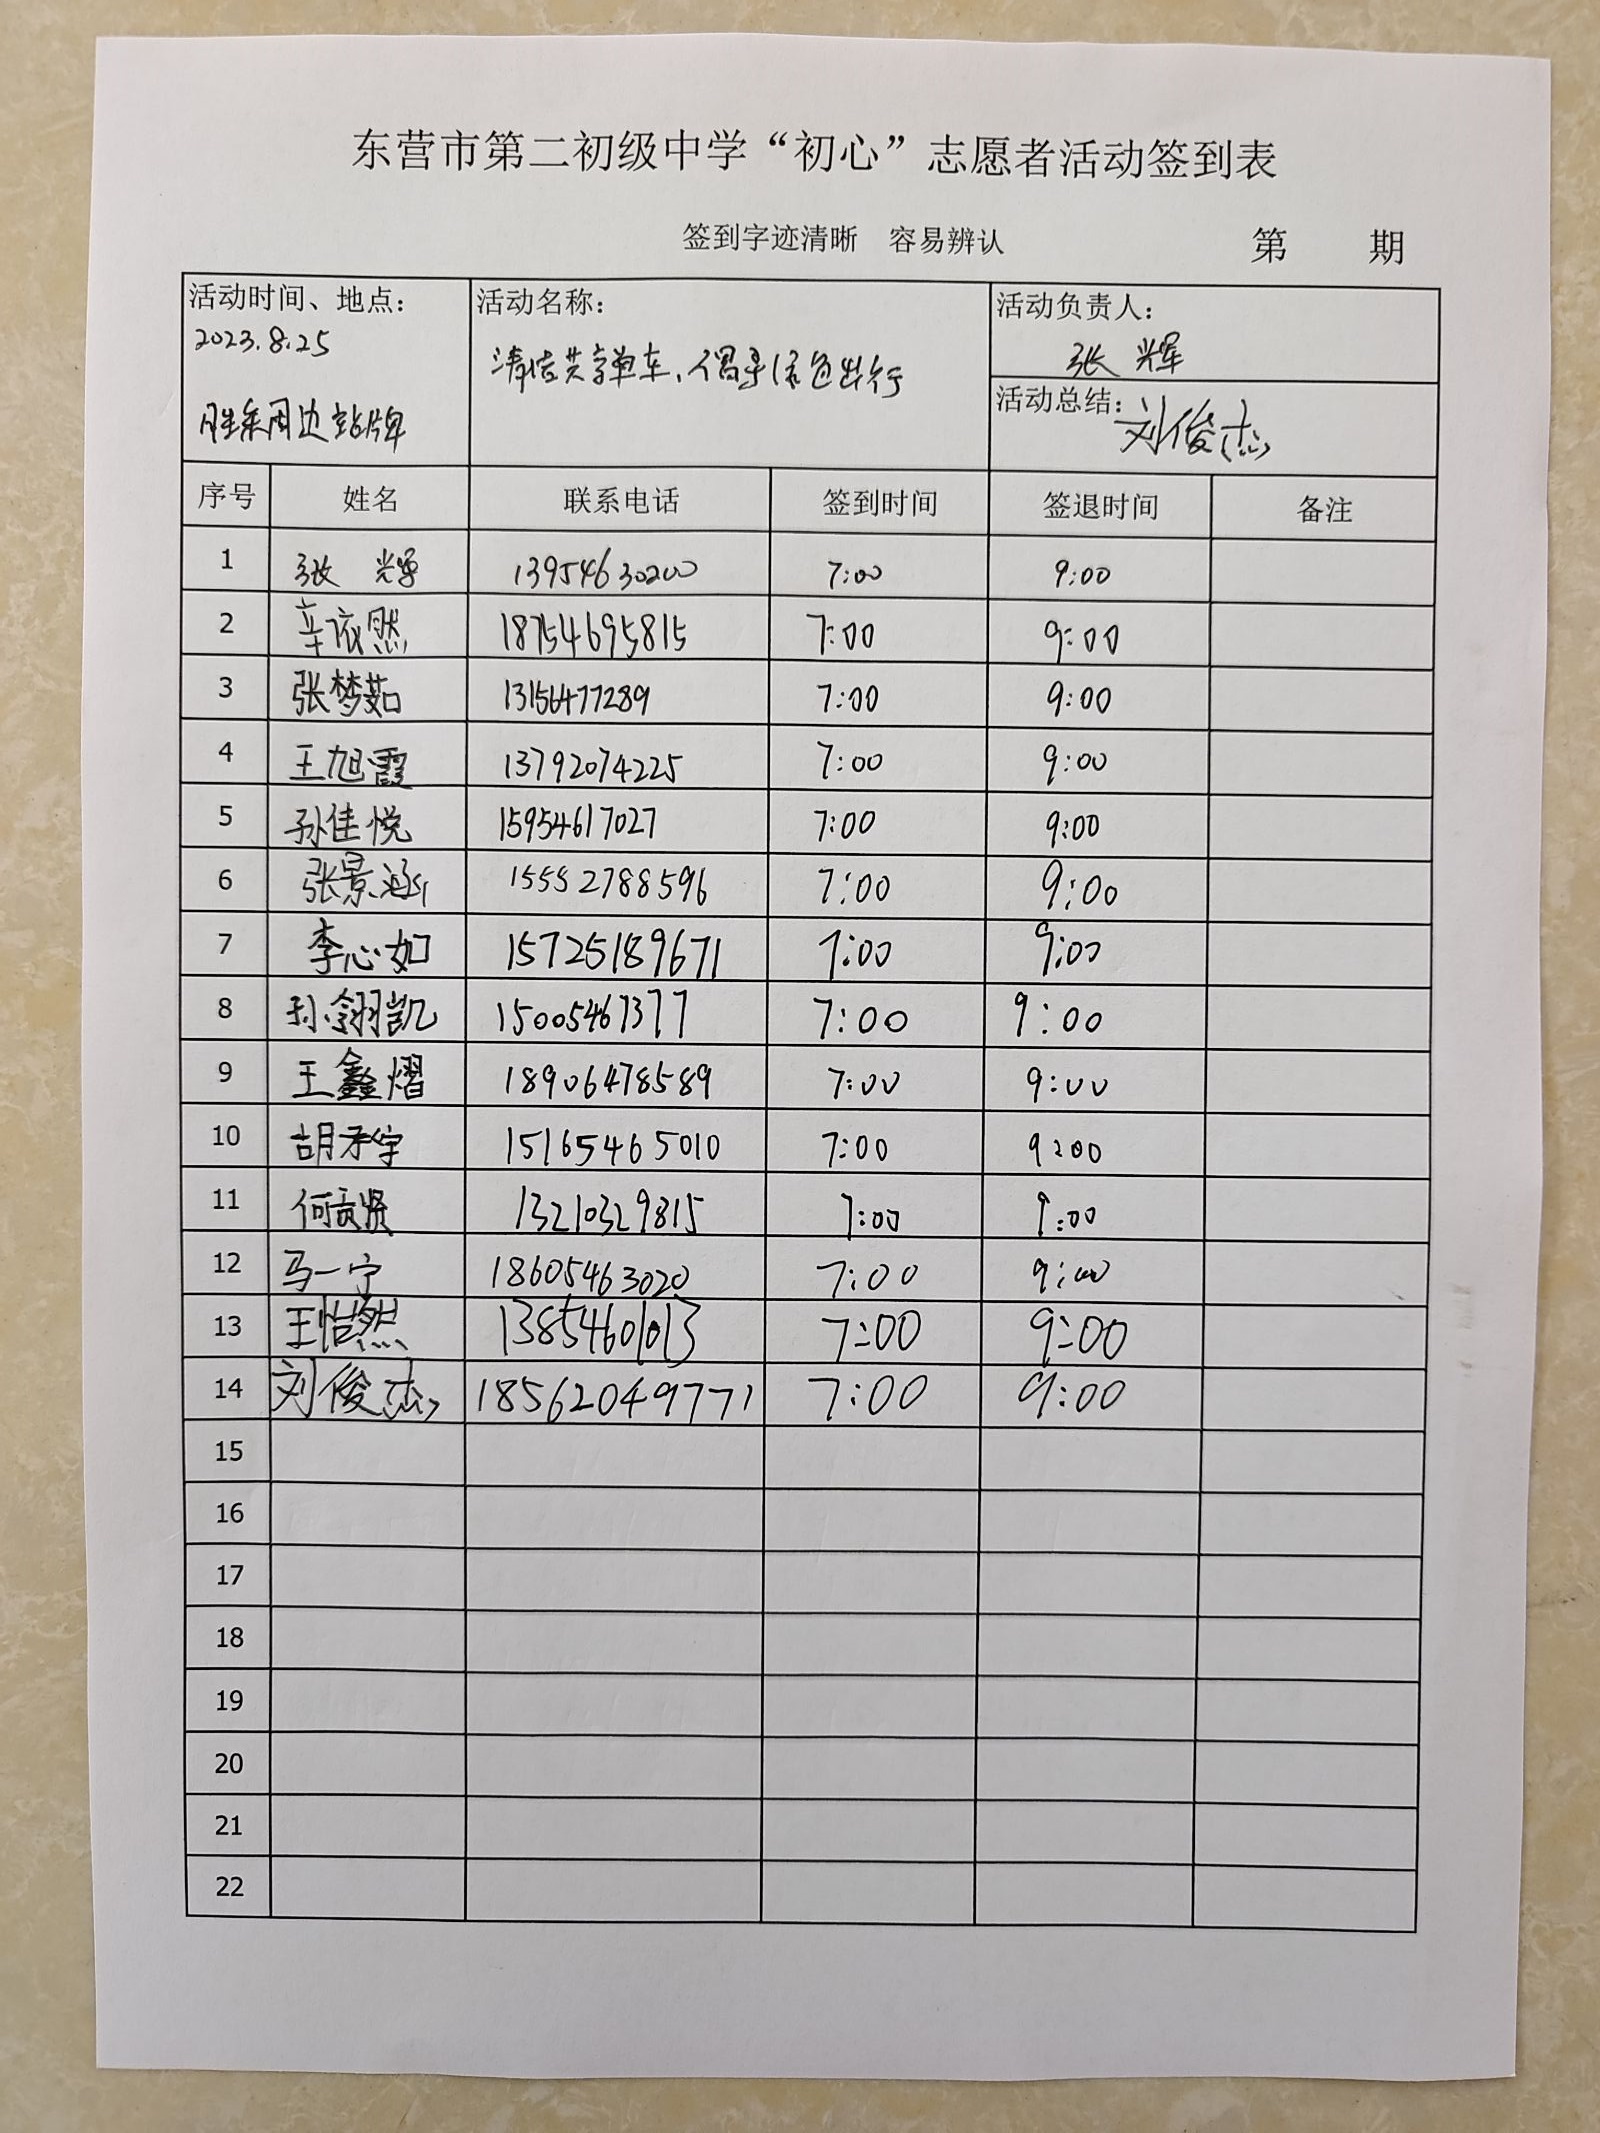 东营市第二初级中学“初心”志愿者活动签到表
签到字迹清晰 容易辨认 第 期
活动时间、地点： 活动名称： 活动负责人：
2023.8.25 清洁共享单车、倡导绿色出行 张辉
胜采周边站牌 活动总结：刘俊杰
序号 姓名 联系电话 签到时间 签退时间 备注
1 张辉 13954630200 7:00 9:00
2 辛依然 18754695815 7:00 9:00
3 张梦茹 13156477289 7:00 9:00
4 王旭霞 13792074225 7:00 9:00
5 孙佳悦 15954617027 7:00 9:00
6 张景涵 15552788596 7:00 9:00
7 李心如 15725189671 7:00 9:00
8 孙翎凯 15005467377 7:00 9:00
9 王鑫熠 18906478589 7:00 9:00
10 15165465010 7:00 9:00
11 13210329815 7:00 9:00
12 马一宁 18605463020 7:00 9:00
13 王怡然 13854601013 7:00 9:00
14 刘俊杰 18562049771 7:00 9:00
15
16
17
18
19
20
21
22